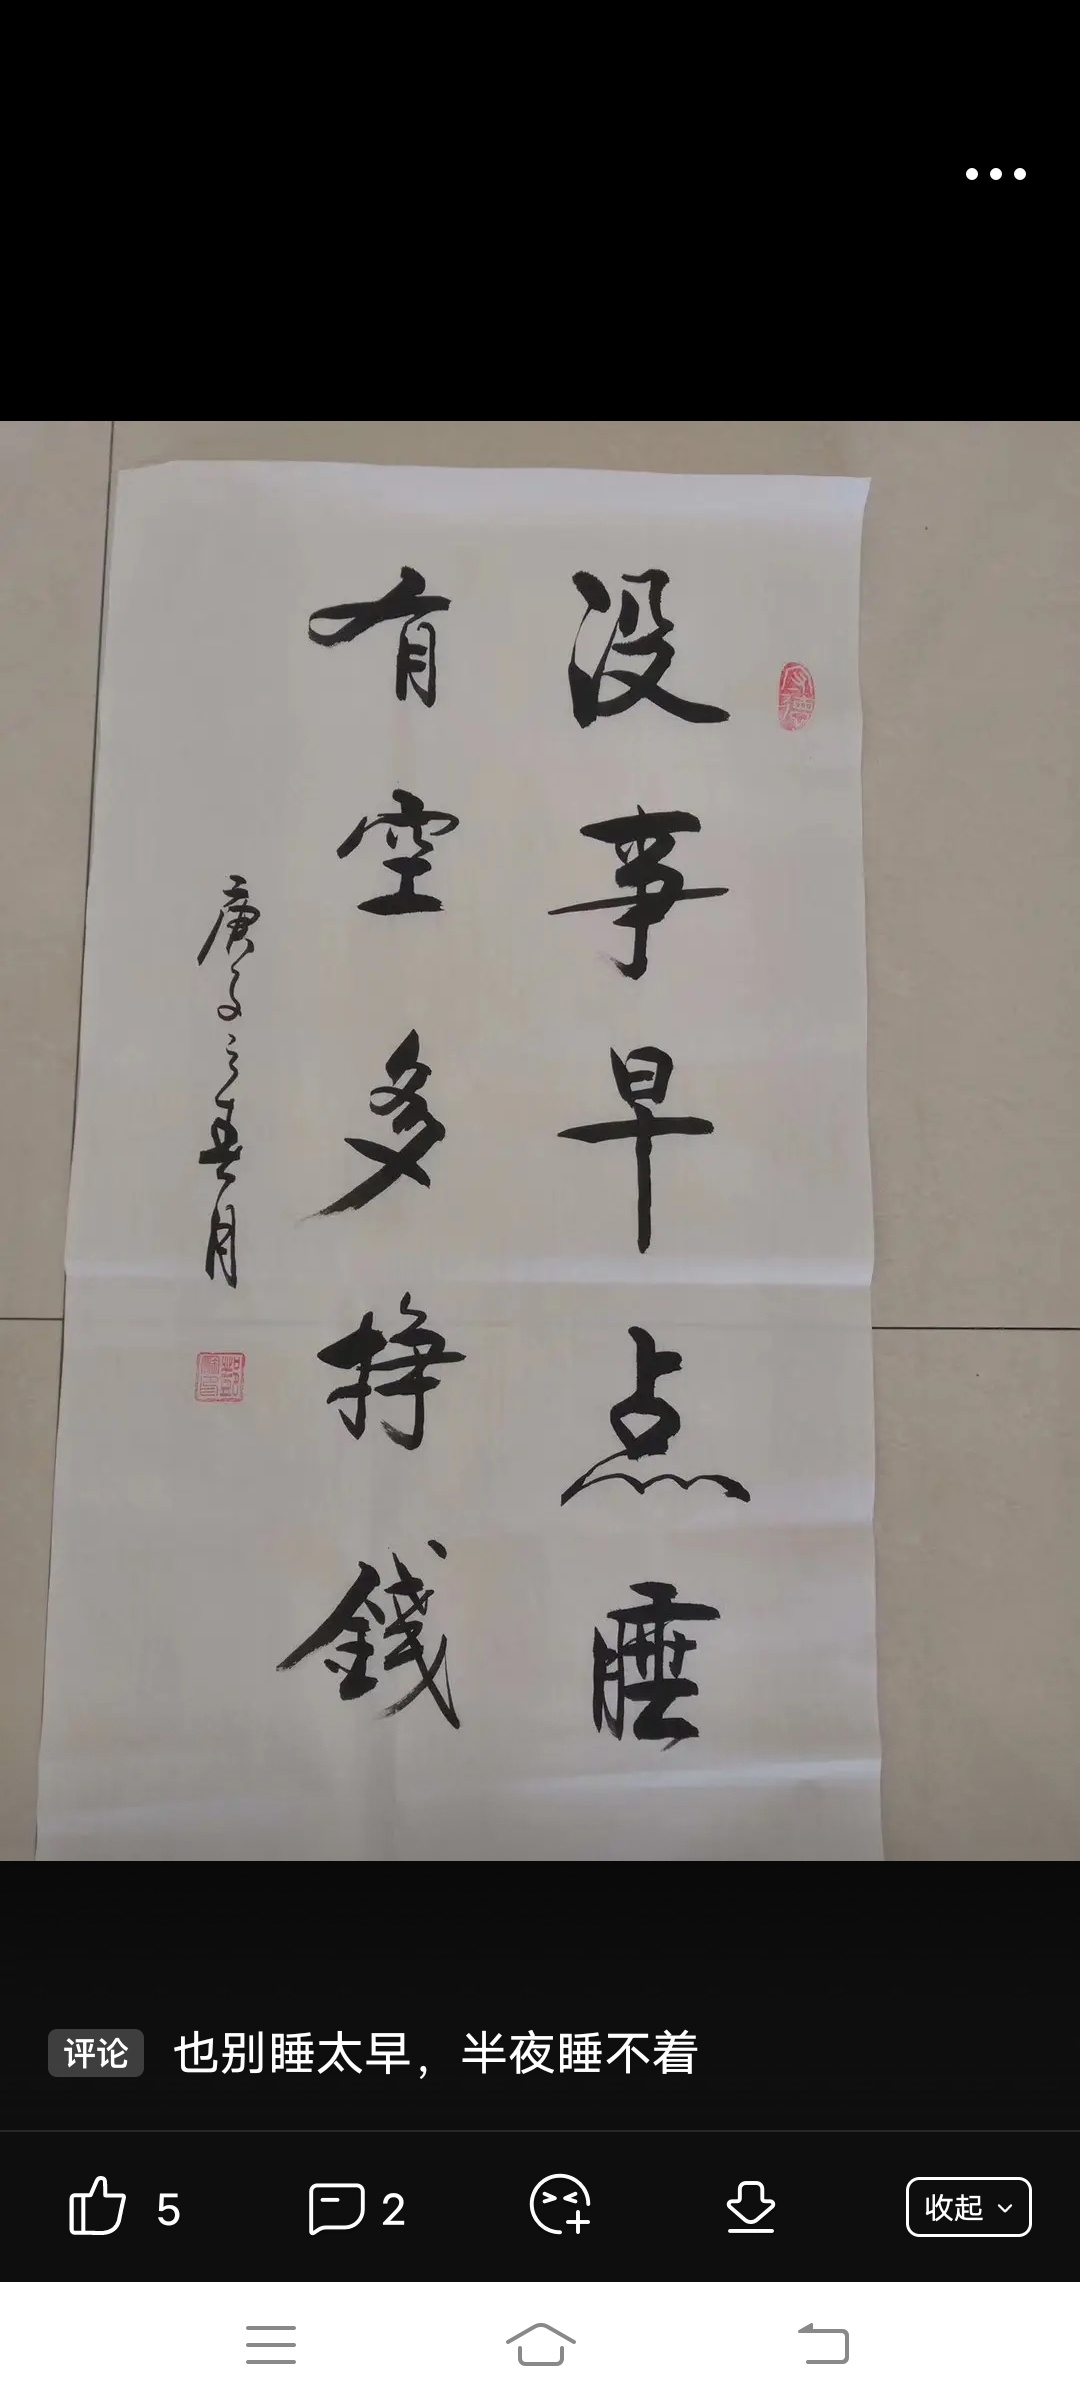 没事早点睡
有空多挣錢
庚子之春月
厚德
评论 也别睡太早，半夜睡不着
5 2 收起